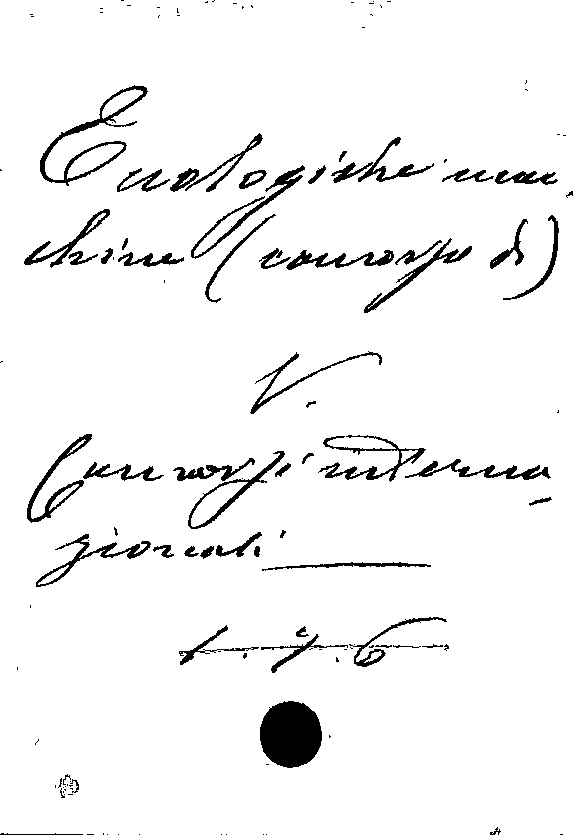 Enologiche mac
chine (concorso di)
V.
Concorsi interna
zionali
1.7.6